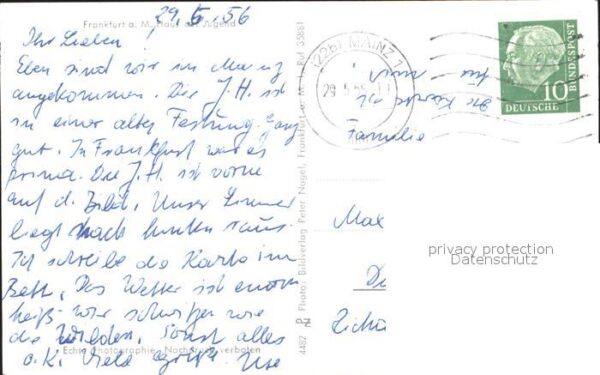 Frankfurt a. M. Haus der Jugend
29.5.56
Ihr Lieben,
Eben sind wir in Mainz
angekommen. Die J.H. ist
in einer alten Festung. Ganz
gut. In Frankfurt war es
prima. Die J.H. ist vorne
auf d. Bild. Unser Zimmer
liegt nach hinten raus.
Ich schreibe die Karte im
Bett. Das Wetter ist enorm
heiß. wir schwitzen wie
die Wilden, sonst alles
o.k. Viele Grüße. Ilse
Echte Photographie. Nachdruck verboten
4482 P Photo: Bildverlag Peter Nagel, Frankfurt a. M.
(22b) MAINZ 1
29.5.56
DEUTSCHE
BUNDESPOST
10
Die Karte ist
für mich!
Familie
Max
privacy protection
Datenschutz